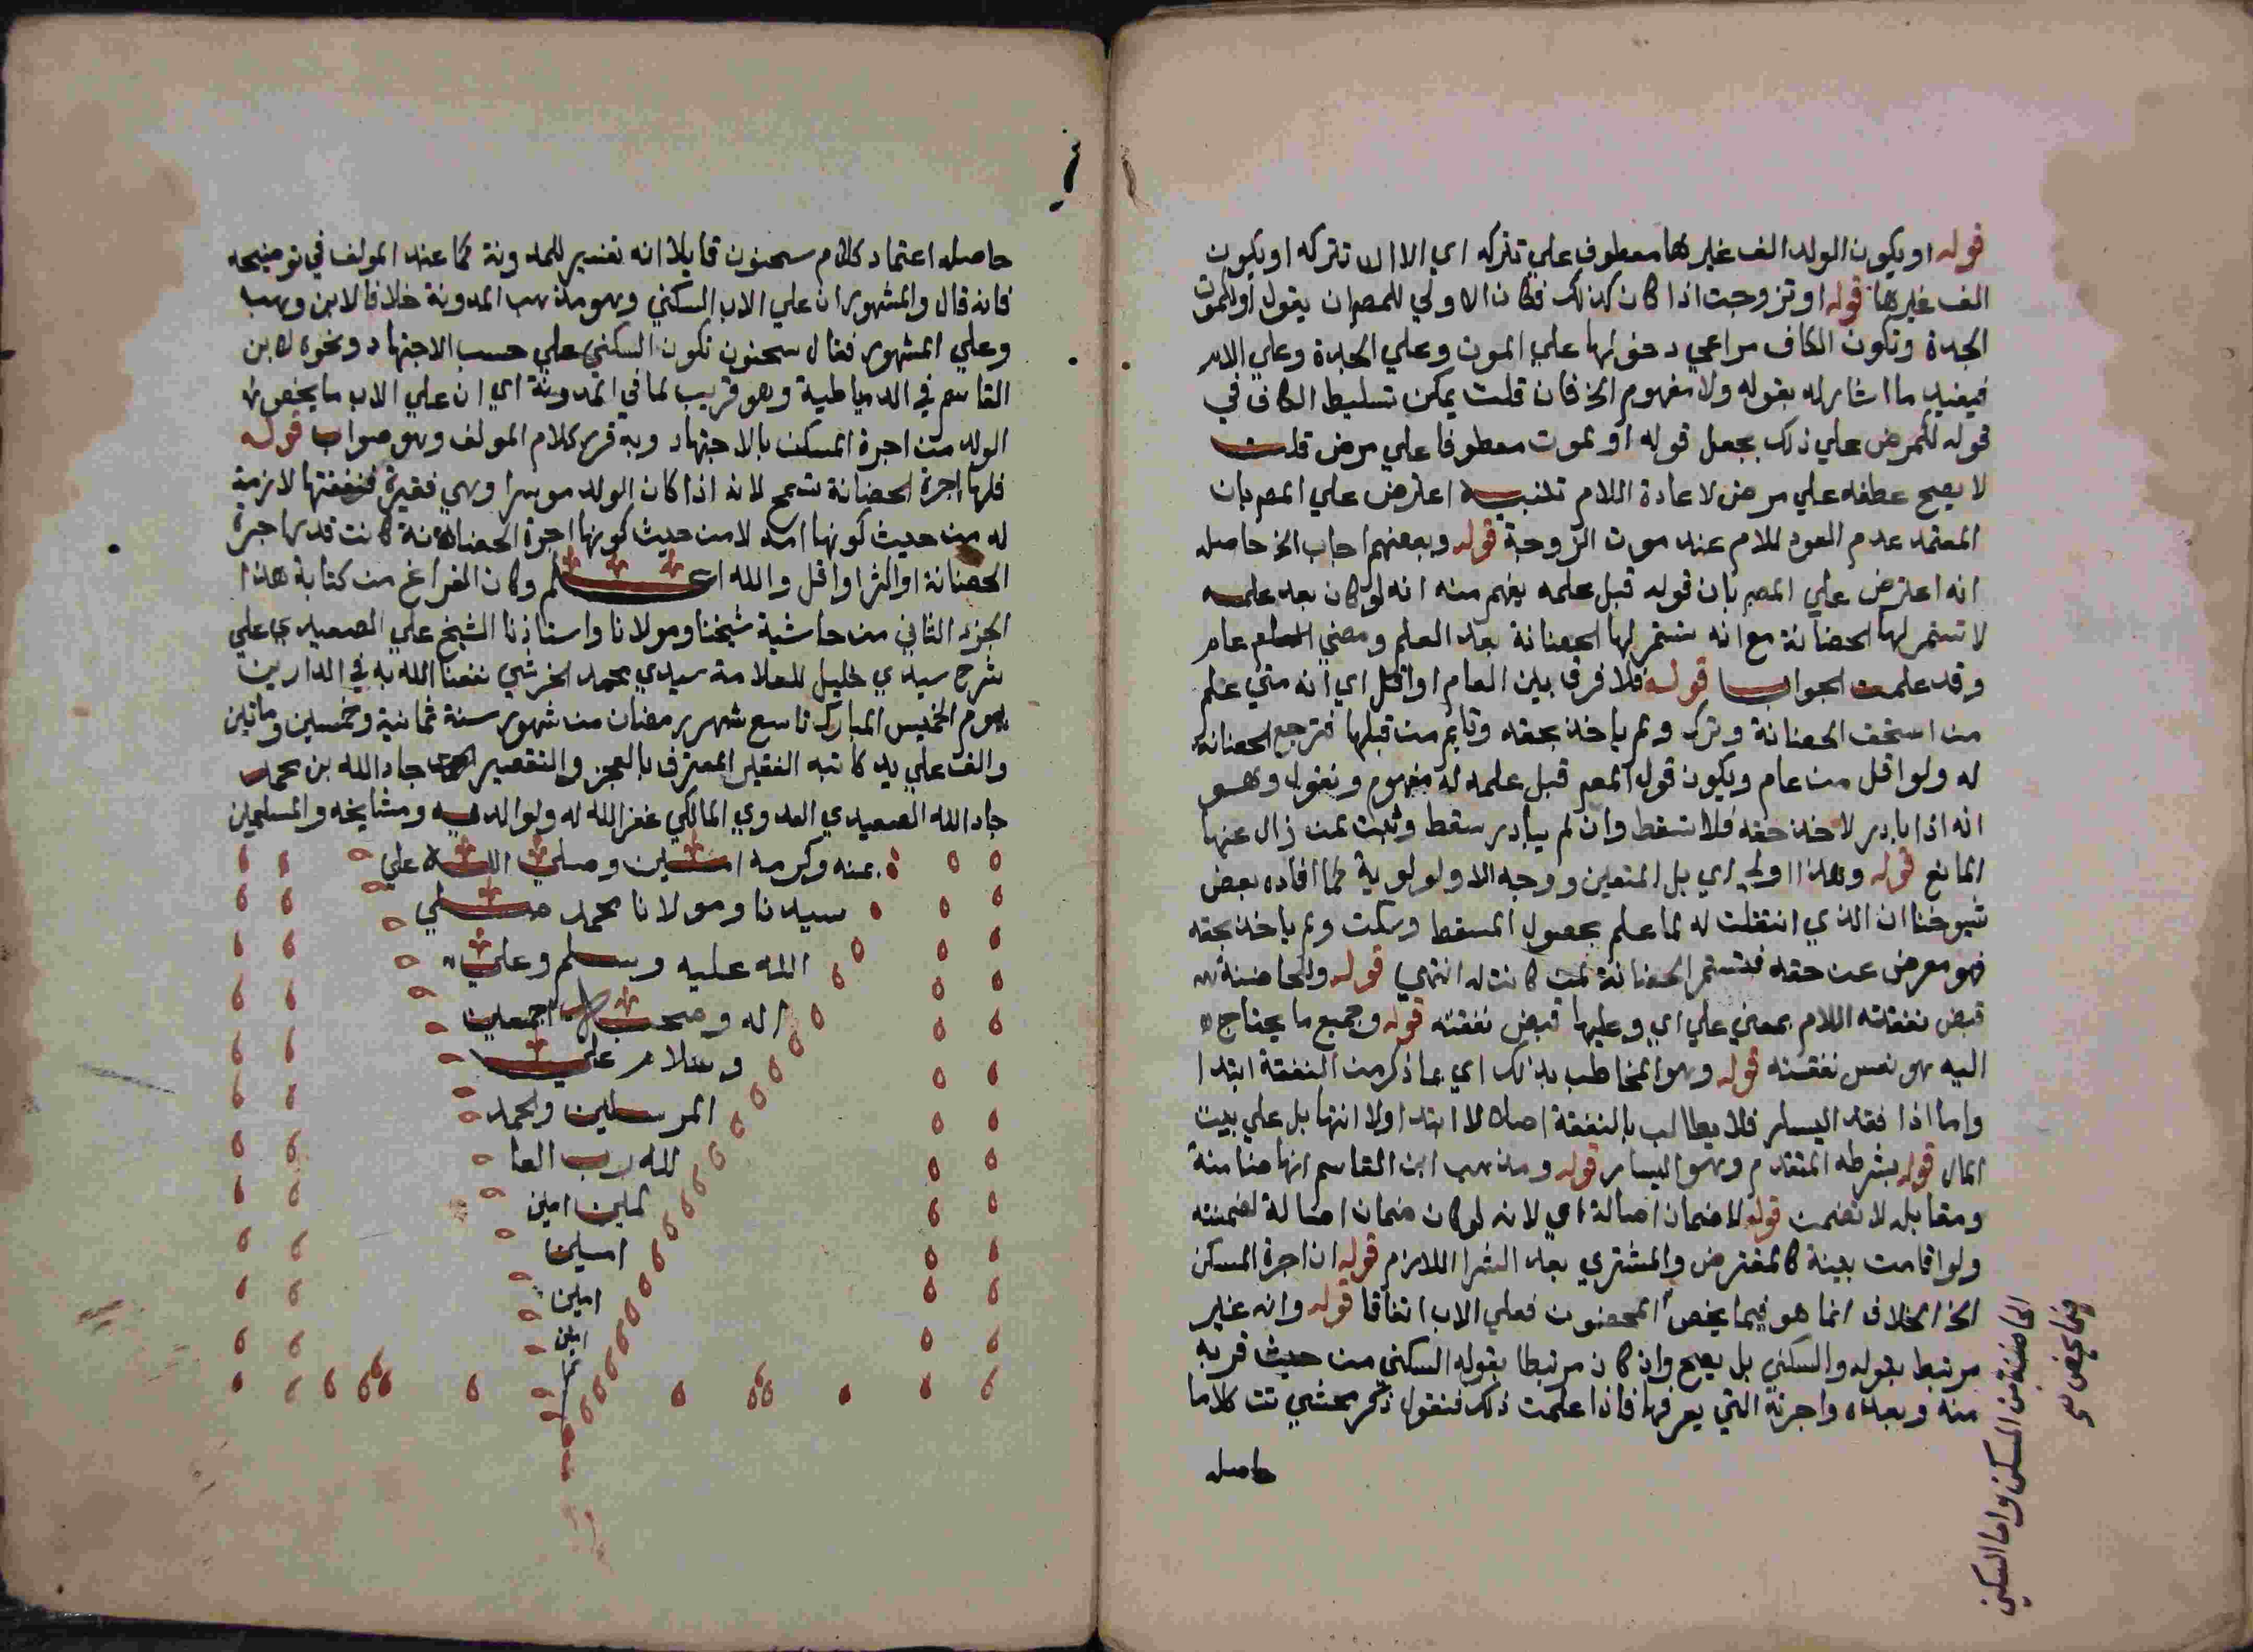 قوله او يكون الولد الف غيرها معطوف علي تتركه اي الا ان تتركه او يكون
الف غيرها قوله او تزوجت اذا كان كذلك فكان الاولي للمصران يقول او لموت
الجدة وتكون الكاف مراعي دخولها علي الموت وعلي الجدة وعلي الام
فيفيد ما اشار له بقوله ولا مفهوم الخ فان قلت يمكن تسليط الكاف في
قوله لكمرض علي ذلك بجعل قوله او لموت معطوفا علي مرض قلت
لا يصح عطفه علي مرض لاعادة اللام تنبيه اعترض علي المص بان
المعتمد عدم العود للام عند موت الزوجة قوله وبعضهم اجاب الخ حاصله
انه اعترض علي المص بان قوله قبل علمه يفهم منه انه لو كان بعد علمه
لا تستمر لها الحضانة مع انه تستمر لها الحضانة بعد العلم ومضي عام
وقد علمت الجواب قوله فلا فرق بين العام او اقل اي انه متي علم
من استحق الحضانة وترك ولم ياخذ بحقه وتايم من قبلها فترجع الحضانة
له ولو اقل من عام ويكون قول المص قبل علمه له مفهوم ونقول وهو
انه اذا بادر لاخذ حقه فلا تسقط وان لم يبادر سقط وثبت لمن زال عنها
المانع قوله وهذا اولي اي بل المتعين ووجه الاولولوية كما افاده بعض
شيوخنا ان الذي انتقلت له لما علم بحصول المسقط وسكت ولم ياخذ بحقه
فهو معرض عن حقه فتستمر الحضانة لمن كانت له انتهي قوله وللحاضنة
قبض نفقته اللام بمعني علي اي وعليها قبض نفقته قوله وجميع ما يحتاج
اليه هو نفس نفقته قوله وهو المخاطب بذلك اي بما ذكر من النفقة ابتدا
واما اذا فقد اليسار فلا يطالب بالنفقة اصلا لا ابتدا ولا انتها بل علي بيت
المال قوله بشرطه المتقدم وهو اليسار قوله ومذهب ابن القاسم انها ضامنة
ومقابله لا تضمن قوله لا ضمان اصالة اي لانه لو كان ضمان اصالة لضمنته
ولو اقامت بينة كالمقترض والمشتري بعد الشرا اللازم قوله ان اجرة المسكن
الخ الخلاف انما هو فيما يخص المحضون فعلي الاب اتفاقا قوله وانه غير
مرتبط بقوله والسكني بل يصح وان كان مرتبطا بقوله السكني من حيث قربه
منه وبعده واجرته التي يعرفها فاذا علمت ذلك فنقول ذكر محشي تت كلاما
حاصله
الحاضنة من المسكن واما السكني
فيما يخص
حاصله اعتماد كلام سحنون قايلا انه تفسير للمدونة كما عند المولف في توضيحه
فانه قال والمشهور ان علي الاب السكني وهو مذهب المدونة خلافا لابن وهب
وعلي المشهور فقال سحنون تكون السكني علي حسب الاجتهاد ونحوه لابن
القاسم في الدمياطية وهو قريب لما في المدونة اي ان علي الاب ما يخص
الولد من اجرة المسكن بالاجتهاد وبه قرر كلام المولف وهو صواب قوله
فلها اجرة الحضانة لانه اذا كان الولد موسرا وهي فقيرة فنفقتها لازمة
له من حيث كونها امه لا من حيث كونها اجرة الحضانة كانت قدر اجرة
الحضانة او اكثر او اقل والله اعلم وكان الفراغ من كتابة هذا
الجزء الثاني من حاشية شيخنا ومولانا واستاذنا الشيخ علي الصعيدي علي
شرح سيدي خليل للعلامة سيدي محمد الخرشي نفعنا الله به في الدارين
يوم الخميس المبارك تاسع شهر رمضان من شهور سنة ثمانية وخمسين وماتين
والف علي يد كاتبه الفقير المعترف بالعجز والتقصير جاد الله بن محمد
جاد الله الصعيدي العدوي المالكي غفر الله له ولوالديه ومشايخه والمسلمين
بمنه وكرمه امين وصلي الله علي
سيدنا ومولانا محمد صلي
الله عليه وسلم وعلي
اله وصحبه اجمعين
وسلام علي
المرسلين والحمد
لله رب العا
لمين امين
امين
امين
امين